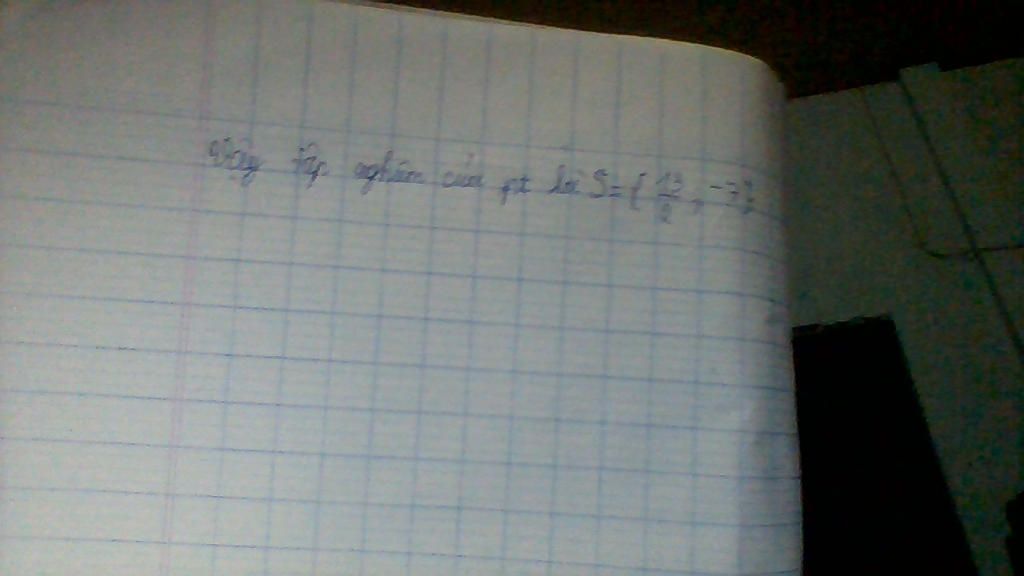 Vậy tập nghiệm của pt là S = { 13/2 , -7 }